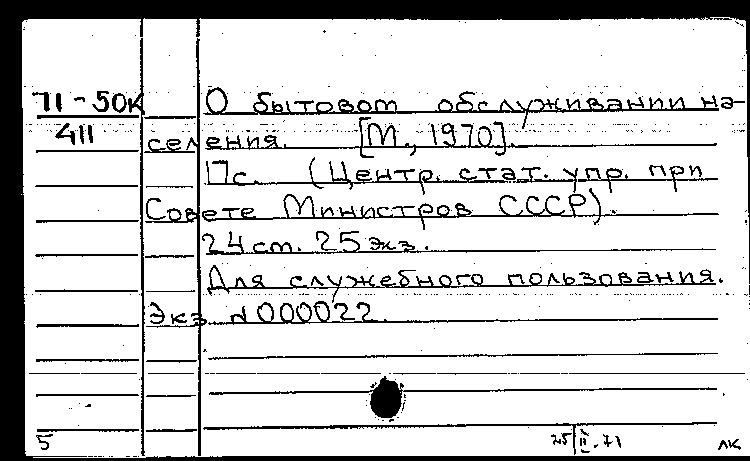 71-50К О бытовом обслуживании на-
411 селения. [М., 1970].
17с. (Центр. стат. упр. при
Совете Министров СССР).
24 ст. 25 экз.
Для служебного пользования.
Экз. №000022.
5 25/II.71 ЛК